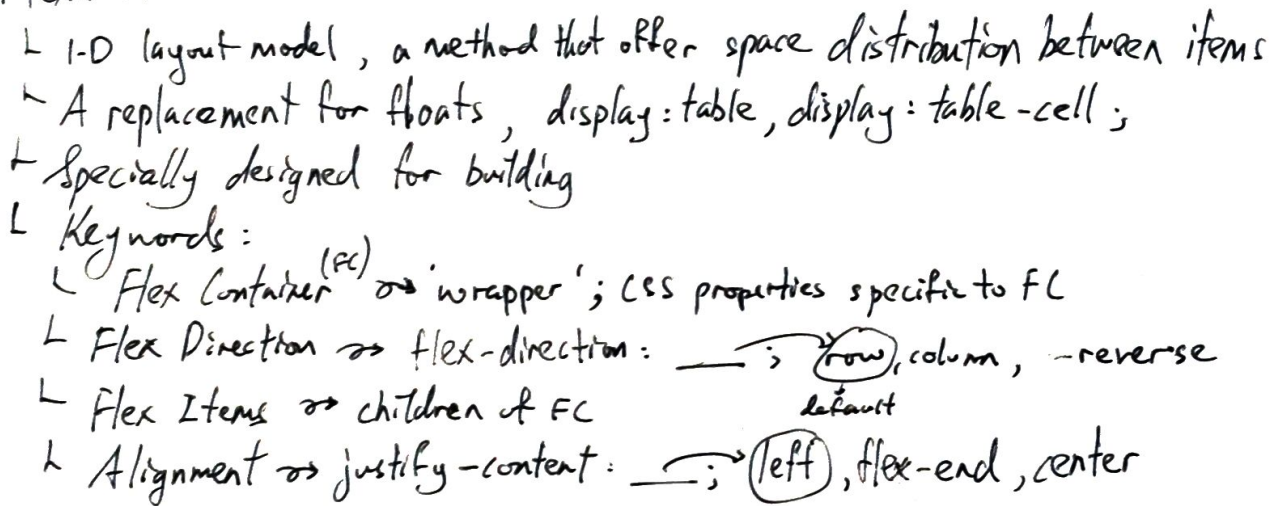 └ 1-D layout model, a method that offer space distribution between items
└ A replacement for floats, display: table, display: table-cell;
└ Specially designed for building
└ Keywords:
└ Flex Container (FC) ~> 'wrapper'; CSS properties specific to FC
└ Flex Direction ~> flex-direction: ___; row, column, -reverse
└ Flex Items ~> children of FC default
└ Alignment ~> justify-content: ___; left, flex-end, center